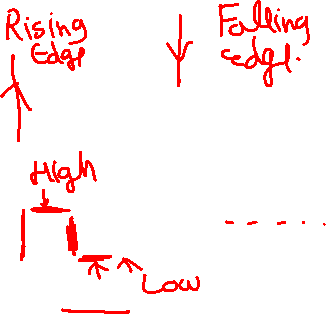 Rising
Edge
Falling
edge.
High
Low